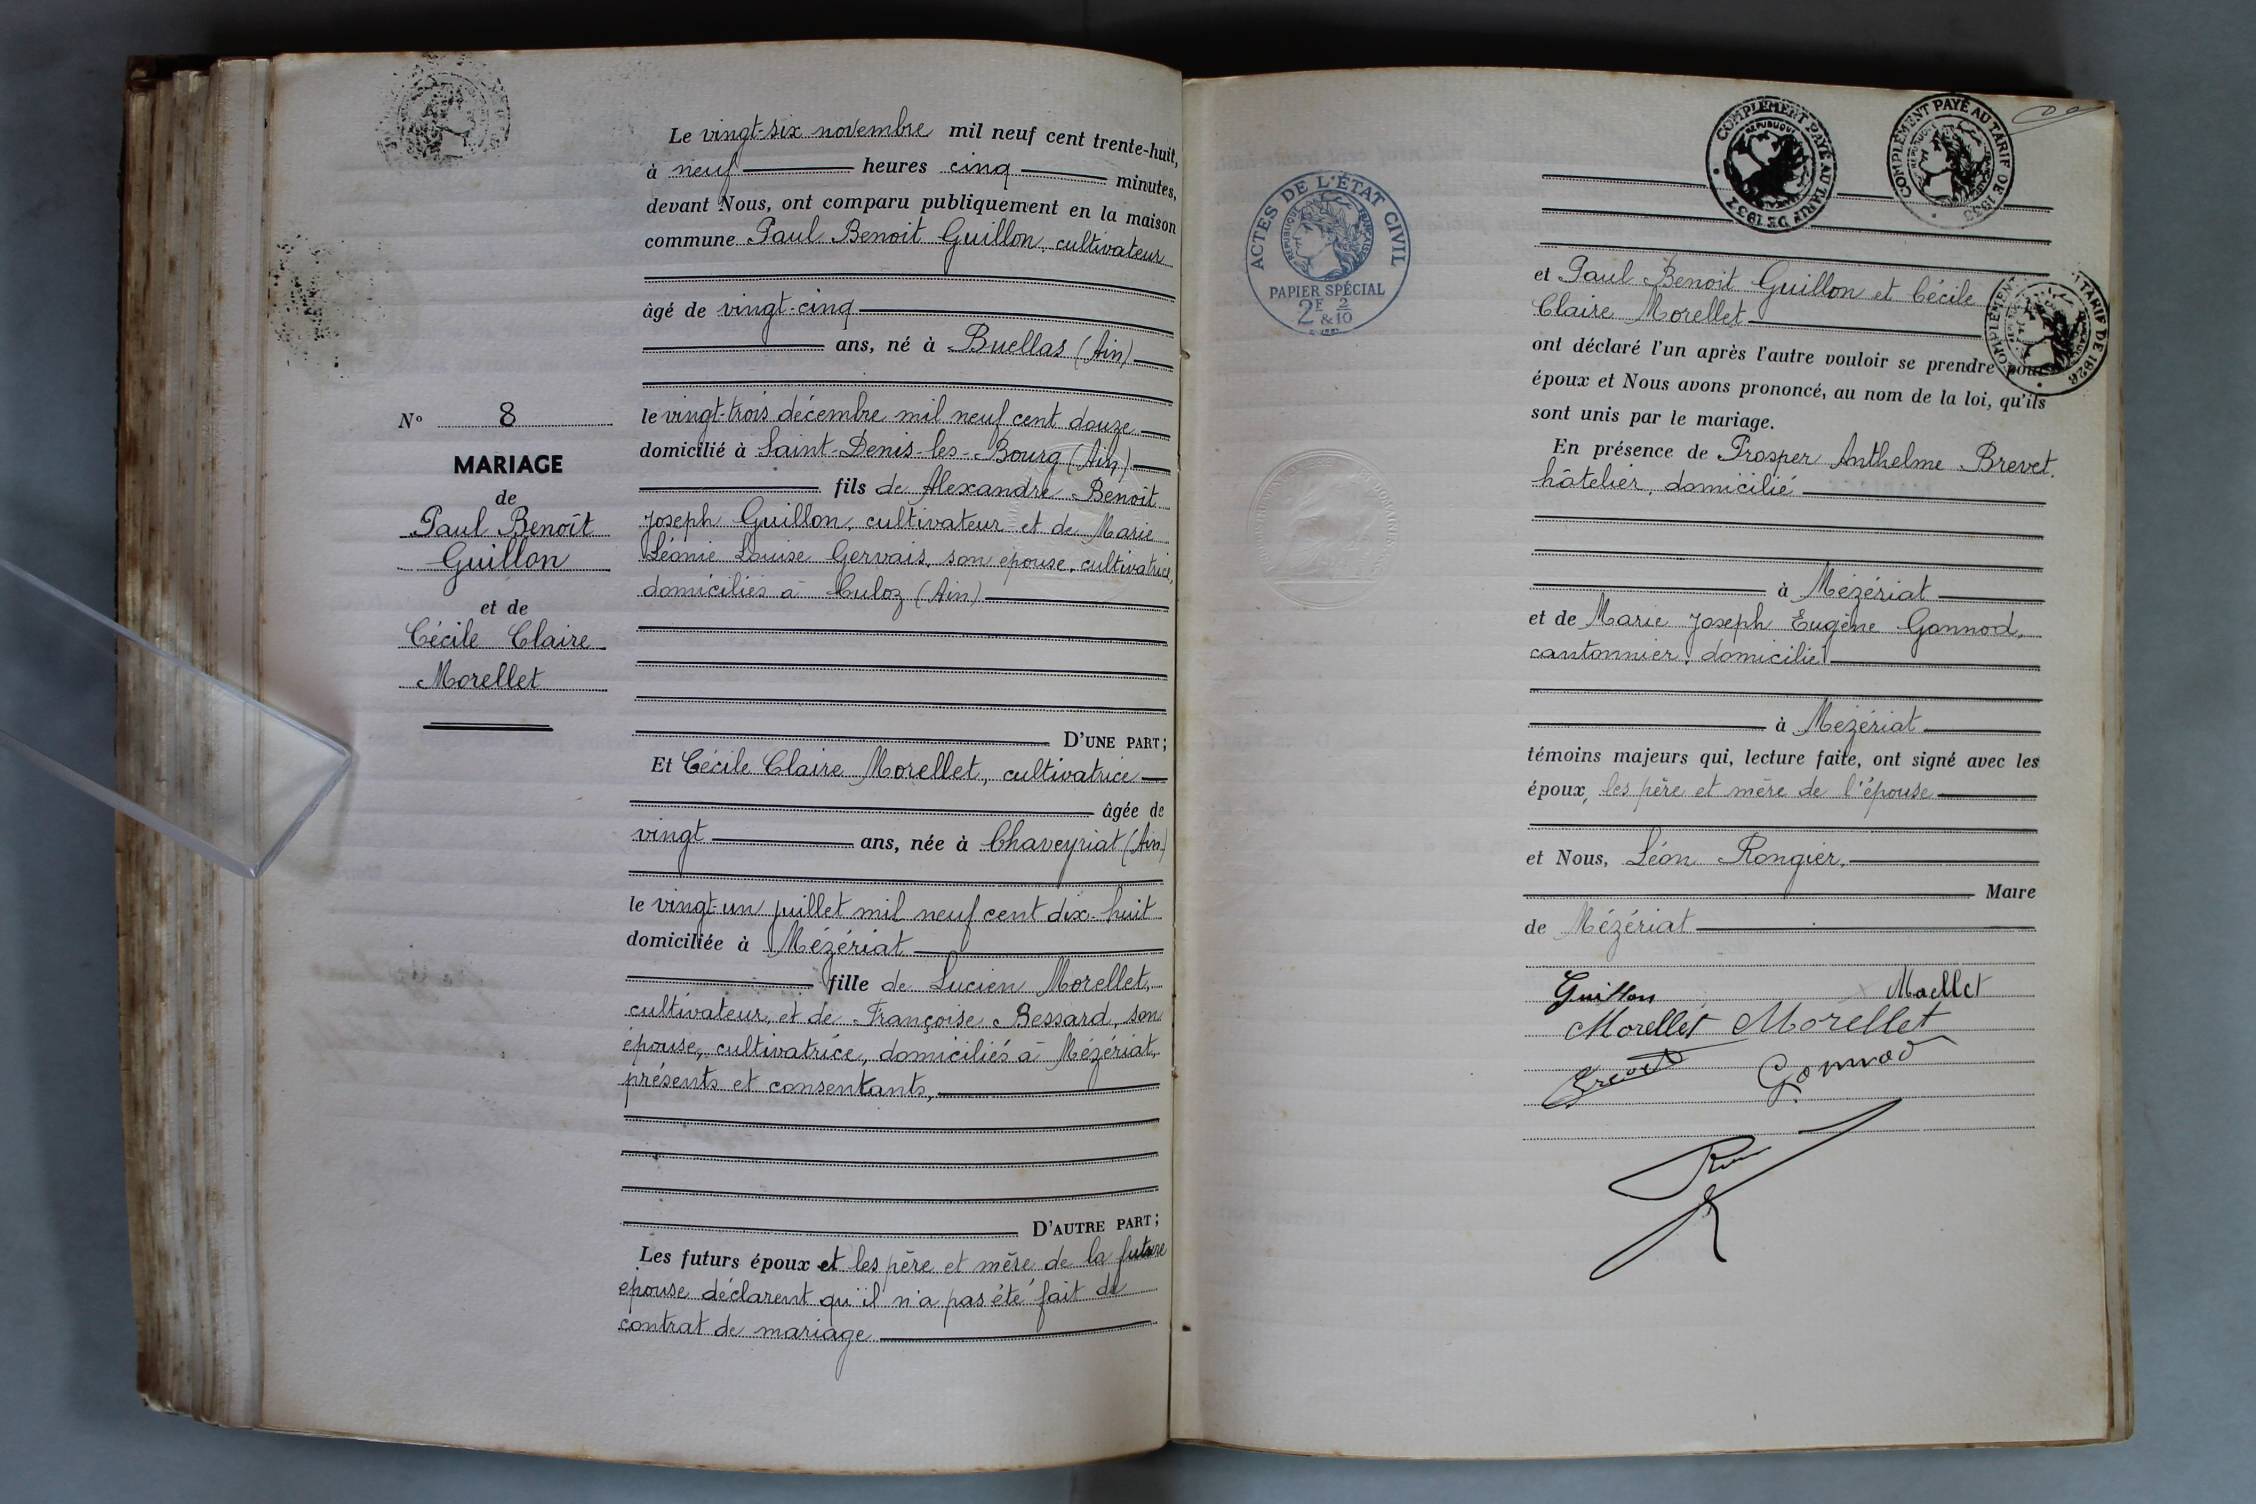 Le vingt-six novembre mil neuf cent trente-huit,
à neuf heures cinq minutes,
devant Nous, ont comparu publiquement en la maison
commune Paul Benoit Guillon, cultivateur
âgé de vingt-cinq
ans, né à Buellas (Ain)
le vingt-trois décembre mil neuf cent douze
domicilié à Saint-Denis-les-Bourg (Ain)
fils de Alexandre Benoit
Joseph Guillon, cultivateur et de Marie
Léonie Louise Gervais, son épouse, cultivatrice,
domiciliés à Culoz (Ain)
D'UNE PART;
Et Cécile Claire Morellet, cultivatrice
âgée de
vingt ans, née à Chaveyriat (Ain)
le vingt-un juillet mil neuf cent dix-huit
domiciliée à Mézériat
fille de Lucien Morellet,
cultivateur, et de Françoise Bessard, son
épouse, cultivatrice, domiciliés à Mézériat,
présents et consentants,
D'AUTRE PART;
Les futurs époux et les père et mère de la future
épouse déclarent qu'il n'a pas été fait de
contrat de mariage
N° 8
MARIAGE
de
Paul Benoît
Guillon
et de
Cécile Claire
Morellet
ACTES DE L'ÉTAT CIVIL
RÉPUBLIQUE FRANÇAISE
PAPIER SPÉCIAL
2F & 2/10
COMPLÉMENT PAYÉ AU TARIF DE 1937
COMPLÉMENT PAYÉ AU TARIF DE 1933
TARIF DE 1926
et Paul Benoit Guillon et Cécile
Claire Morellet
ont déclaré l'un après l'autre vouloir se prendre pour
époux et Nous avons prononcé, au nom de la loi, qu'ils
sont unis par le mariage.
En présence de Prosper Anthelme Brevet,
hôtelier, domicilié
à Mézériat
et de Marie Joseph Eugène Gonnod,
cantonnier, domicilié
à Mézériat
témoins majeurs qui, lecture faite, ont signé avec les
époux, les père et mère de l'épouse
et Nous, Léon Rongier,
Maire
de Mézériat
Guillon Morellet
Morellet Morellet
Brevet Gonnod